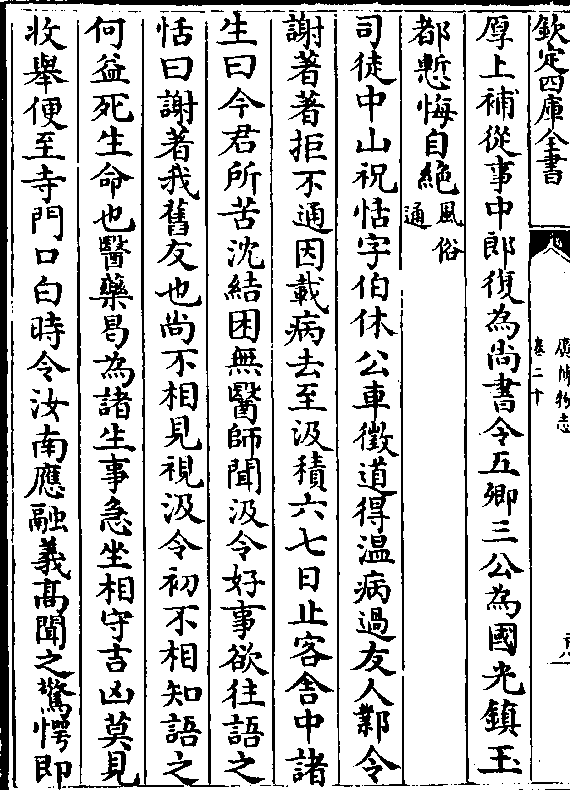 欽定四庫全書
廣博物志
卷二十
厚上補從事中郎復為尚書令五卿三公為國光鎮玉
都慙悔自絶風俗通
司徒中山祝恬字伯休公車徵道得温病過友人鄴令
謝著著拒不通因載病去至汲積六七日止客舍中諸
生曰今君所苦沈結困無醫師聞汲令好事欲往語之
恬曰謝著我舊友也尚不相見視汲令初不相知語之
何益死生命也醫藥曷為諸生事急坐相守吉凶莫見
收舉便至寺門口白時令汝南應融義髙聞之驚愕即